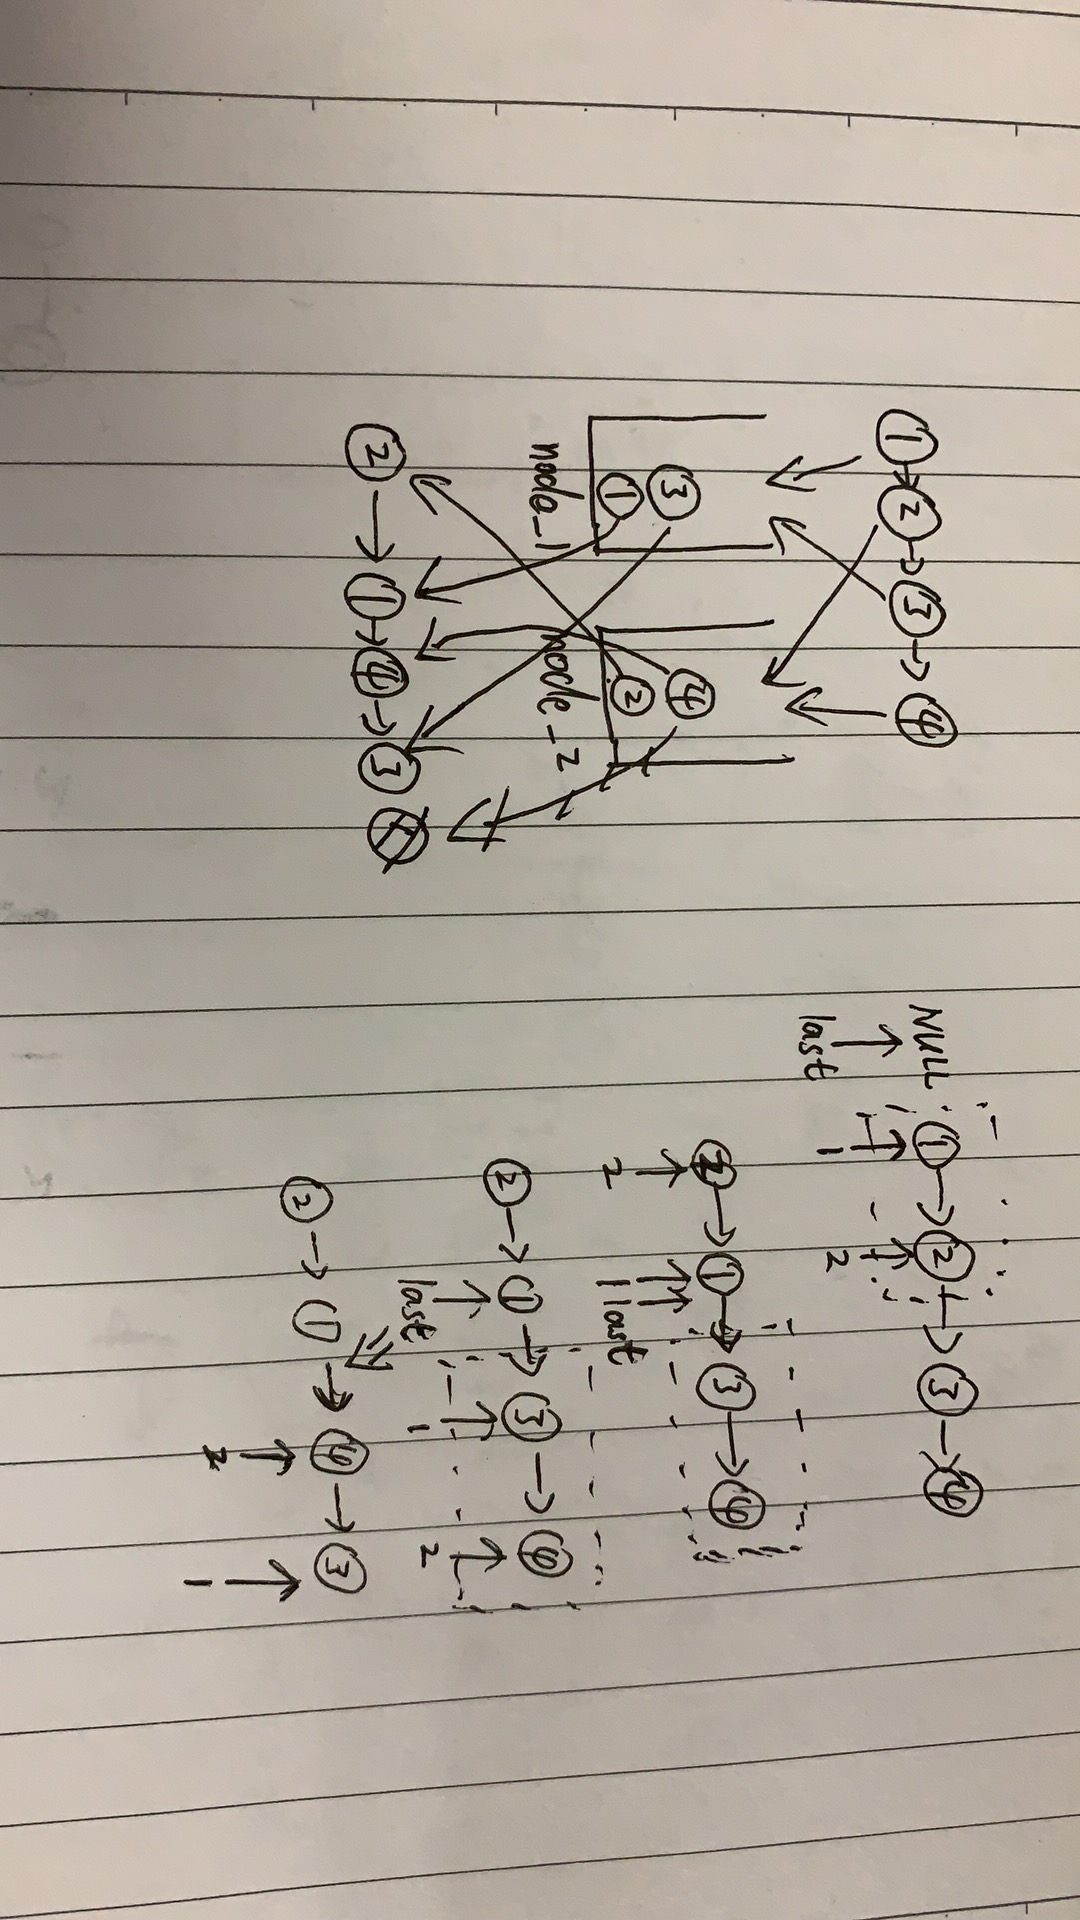 ① → ② → ③ → ④
③
①
node_1
④
②
node_2
② → ① → ④ → ③
NULL ① → ② → ③ → ④
last 1 2
② → ① → ③ → ④
2 1 last
② → ① → ③ → ④
last 1 2
② → ① → ④ → ③
2 1